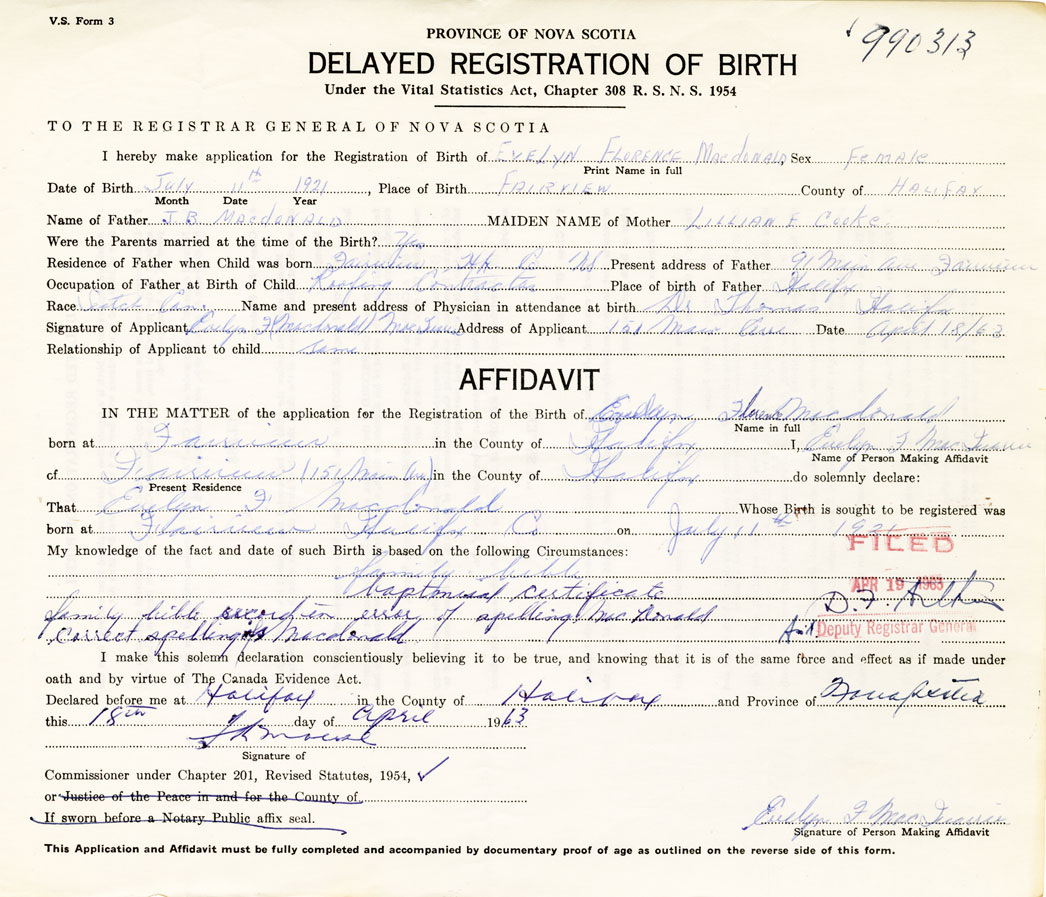 V.S. Form 3
990313
PROVINCE OF NOVA SCOTIA
DELAYED REGISTRATION OF BIRTH
Under the Vital Statistics Act, Chapter 308 R. S. N. S. 1954
TO THE REGISTRAR GENERAL OF NOVA SCOTIA
I hereby make application for the Registration of Birth of Evelyn Florence Macdonald, Sex Female
Print Name in full
Date of Birth July 11th 1921, Place of Birth Fairview County of Halifax
Month Date Year
Name of Father J B Macdonald MAIDEN NAME of Mother Lillian F Cooke
Were the Parents married at the time of the Birth? Yes
Residence of Father when Child was born Fairview Hfx Co NS Present address of Father 91 Main Ave Fairview
Occupation of Father at Birth of Child Roofing Contractor Place of birth of Father Halifx
Race Scotch Cana Name and present address of Physician in attendance at birth Dr Thomas Halifx
Signature of Applicant Evelyn F (Macdonald) Address of Applicant 151 Main Ave Date April 18/63
Relationship of Applicant to child same
AFFIDAVIT
IN THE MATTER of the application for the Registration of the Birth of Evelyn Florence Macdonald
Name in full
born at Fairview in the County of Halifx I, Evelyn F
Name of Person Making Affidavit
of Fairview (151 Main Ave) in the County of Halifx do solemnly declare:
Present Residence
That Evelyn F Macdonald Whose Birth is sought to be registered was
born at Fairview Halifx Co on July 11th 1921
My knowledge of the fact and date of such Birth is based on the following Circumstances:
FILED
family bible
APR 19 1963
baptonical certificate
family bible record in error of spelling MacDonald
D. F.
Correct spelling is Macdonald
Deputy Registrar General
I make this solemn declaration conscientiously believing it to be true, and knowing that it is of the same force and effect as if made under
oath and by virtue of The Canada Evidence Act.
Declared before me at Halifax in the County of Halifax and Province of Nova Scotia
this 18th day of April 1963
Signature of
Commissioner under Chapter 201, Revised Statutes, 1954, ✓
or Justice of the Peace in and for the County of
If sworn before a Notary Public affix seal.
Evelyn F
Signature of Person Making Affidavit
This Application and Affidavit must be fully completed and accompanied by documentary proof of age as outlined on the reverse side of this form.